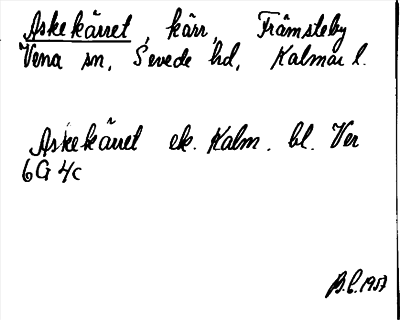 Askekärret, kärr, Främsteby
Vena sn, Sevede hd, Kalmar l.
Askekärret ek. Kalm. bl. Ver
6G 4c
B.L. 1957